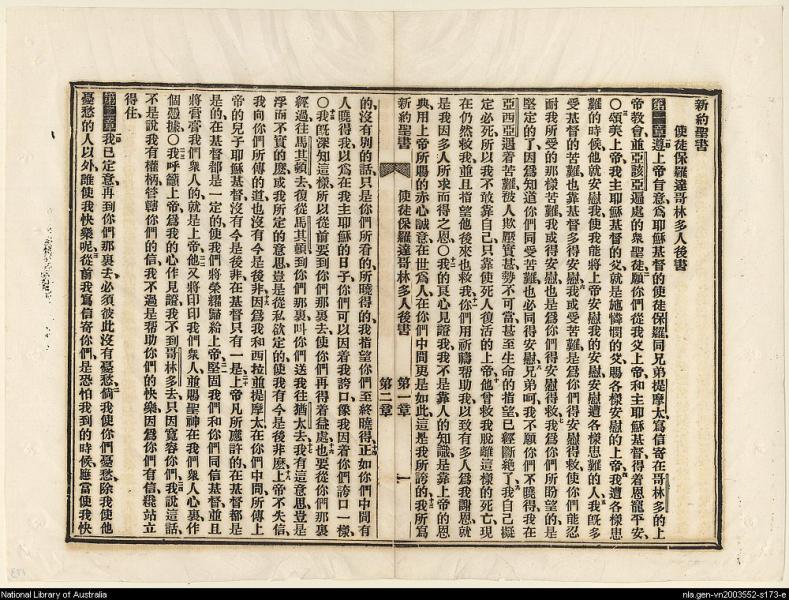 新約聖書
使徒保羅達哥林多人後書
第一章遵上帝旨意爲耶穌基督的使徒保羅同兄弟提摩太寫信寄在哥林多的上
帝教會並亞該亞遍處的衆聖徒願你們從我父上帝和主耶穌基督得着恩寵平安
〇頌美上帝我主耶穌基督的父就是施憐憫的父賜各樣安慰的上帝我遭各樣患
難的時候他就安慰我使我能將上帝安慰我的安慰安慰遭各樣患難的人我旣多
受基督的苦難也靠基督多得安慰我或受苦難是爲你們得安慰得救使你們能忍
耐我所受的那樣苦難我或得安慰也是爲你們得安慰得救我爲你們所盼望的是
堅定的了因爲知道你們同受苦難也必同得安慰兄弟呵我不願你們不曉得我在
亞西亞遇着苦難被人欺壓實甚勢不可當甚至生命的指望已經斷絶了我自己擬
定必死所以我不敢靠自己只靠使死人復活的上帝他曾救我脫離這樣的死亡現
在仍然救我並且指望他後來也救我你們用祈禱帮助我以致有多人爲我謝恩就
是我因多人所求而得之恩〇我的良心見證我我不是靠人的知識是靠上帝的恩
典用上帝所賜的赤心誠意在世爲人在你們中間更是如此這是我所誇的我所寫
新約聖書 使徒保羅達哥林多人後書 第一章 第二章 一
的沒有別的話只是你們所看的所曉得的我指望你們至終曉得正如你們中間有
人曉得我以爲在我主耶穌的日子你們可以因着我誇口像我因着你們誇口一樣
〇我旣深知這樣所以從前要到你們那裏去使你們再得着益處也要從你們那裏
經過往馬其頓去復從馬其頓到你們那裏叫你們送我往猶太去我有這意思豈是
浮而不實的麽或我所定的意思豈是從私欲定的使我有今是後非麽上帝不失信
我向你們所傳的道也沒有今是後非因爲我和西拉並提摩太在你們中間所傳上
帝的兒子耶穌基督沒有今是後非在基督只有一是上帝凡所應許的在基督都是
是的在基督都是一定的使我們將榮耀歸給上帝堅固我們和你們同信基督並且
將膏膏我們衆人的就是上帝他又將印印我們衆人並賜聖神在我們衆人心裏作
個憑據〇我呼籲上帝爲我的心作見證我不到哥林多去只因寬容你們我說這話
不是說我有權柄管轄你們的信我不過是帮助你們的快樂因爲你們有信纔站立
得住
第二章我已定意再到你們那裏去必須彼此沒有憂愁倘我使你們憂愁除我使他
憂愁的人以外誰使我快樂呢從前我寫信寄你們是恐怕我到的時候應當使我快
National Library of Australia
nla.gen-vn2003552-s173-e